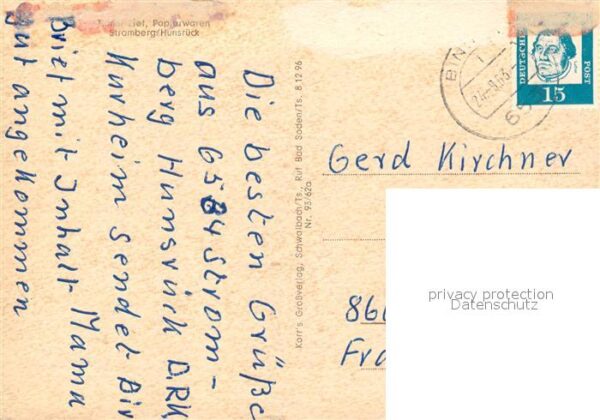 Papierwaren
Stromberg/Hunsrück
Die besten Grüße
aus 6534 Strom-
berg Hunsrück DRK
Kurheim sendet Dir
Mama
Brief mit Inhalt
gut angekommen
Korr's Großverlag, Schwalbach/Ts., Ruf Bad Soden/Ts. 8 12 96
Nr. 93/62a
BIN
65
DEUTSCHE
POST
15
Gerd Kirchner
86
Fra
privacy protection
Datenschutz